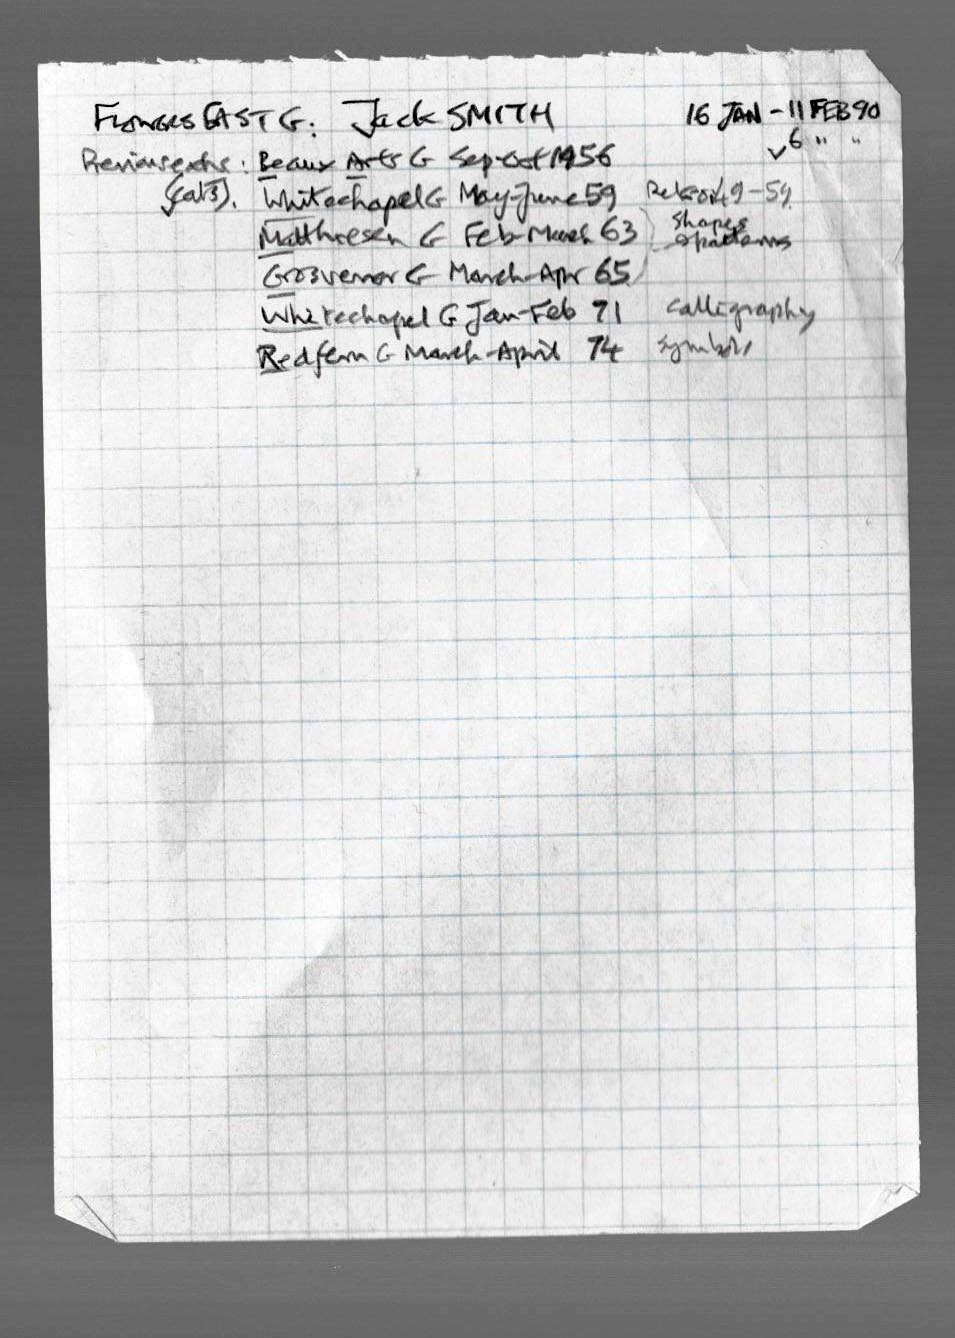 FLOWERS EAST G: Jack SMITH 16 JAN - 11 FEB 90
Previous exhs: Beaux Arts G Sep-Oct 1956 ✓6 " "
(cat 3). Whitechapel G May-June 59 49-59
Matthiesen G Feb-March 63 } shapes
& patterns
Grosvenor G March-Apr 65
Whitechapel G Jan-Feb 71 calligraphy
Redfern G March-April 74 symbols